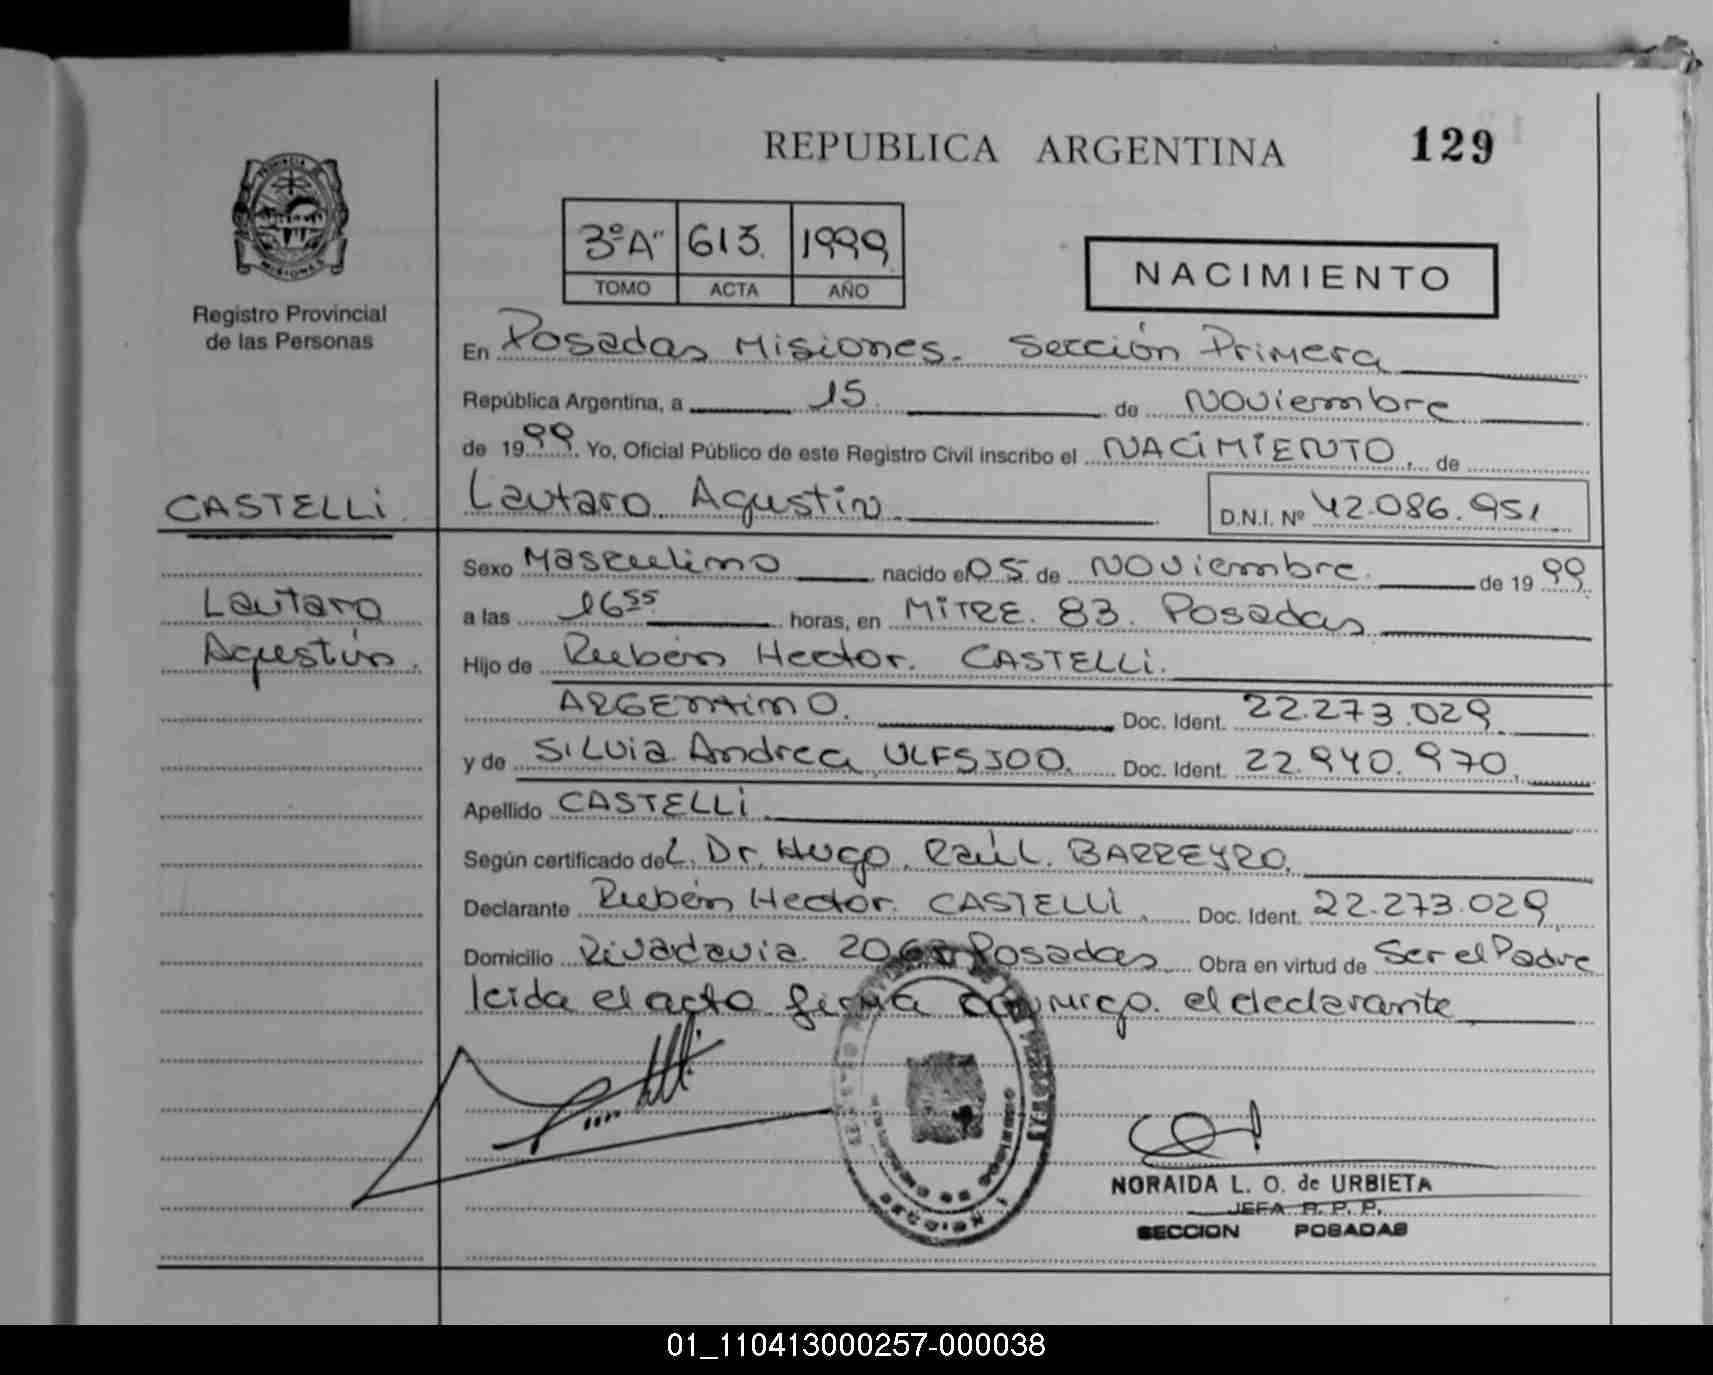 REPUBLICA ARGENTINA 129
PROVINCIA
MISIONES
Registro Provincial
de las Personas
3º "A" 613. 1999
TOMO ACTA AÑO
NACIMIENTO
En Posadas Misiones. Sección Primera
República Argentina, a 15 de Noviembre
de 1999. Yo, Oficial Público de este Registro Civil inscribo el NACIMIENTO, de
CASTELLI Lautaro Agustín D.N.I. Nº 42.086.951
Sexo Masculino nacido el 05 de Noviembre. de 1999
Lautaro a las 16 55 horas, en MITRE. 83. Posadas
Agustín. Hijo de Rubén Hector. CASTELLI.
ARGENTINO. Doc. Ident. 22.273.029
y de SILVIA Andrea ULFSJOO. Doc. Ident. 22.940.970.
Apellido CASTELLI
Según certificado del. Dr. Hugo. Raúl. BARREYRO.
Declarante Rubén Hector. CASTELLI Doc. Ident. 22.273.029
Domicilio Rivadavia Posadas Obra en virtud de Ser el Padre
leida el acto firma conmigo. el declarante
NORAIDA L. O. de URBIETA
JEFA R. P. P.
SECCION POSADAS
01_110413000257-000038